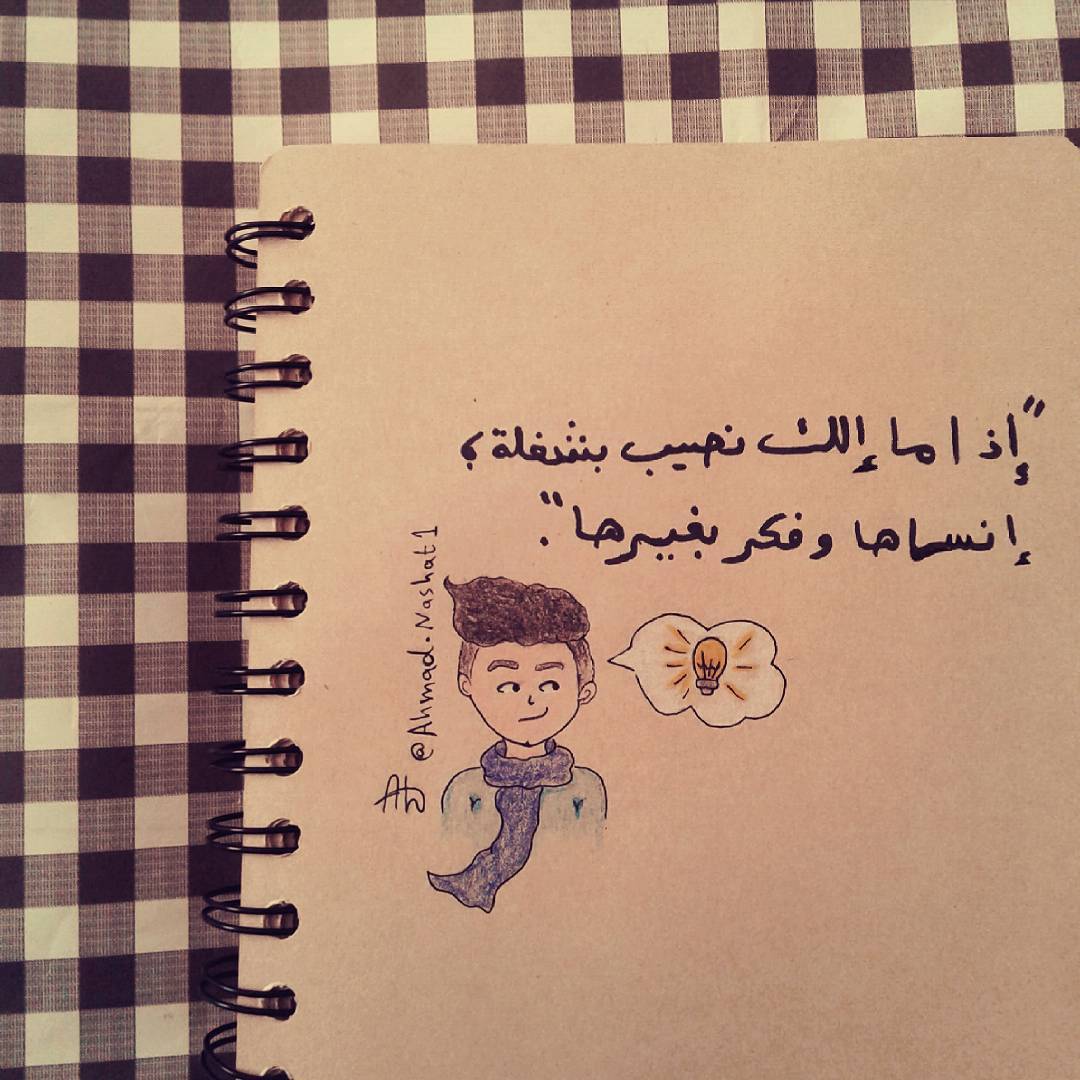 "إذا ما إلك نصيب بشغلة؛
إنساها وفكر بغيرها".
@Ahmad.Nashat1